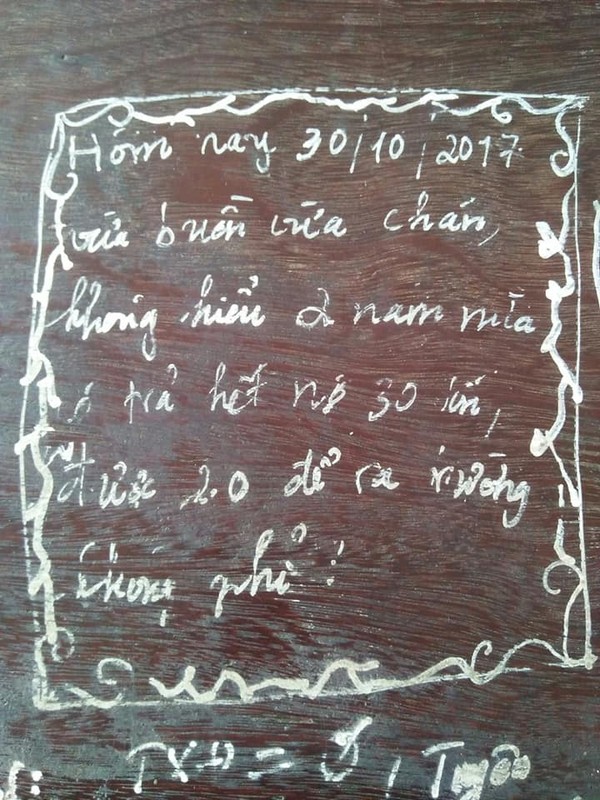 Hôm nay 30/10/2017
vừa buồn vừa chán,
không hiểu 2 năm nữa
trả hết nợ 30 tín,
được 2.0 để ra trường
không phỉ!
TXD =